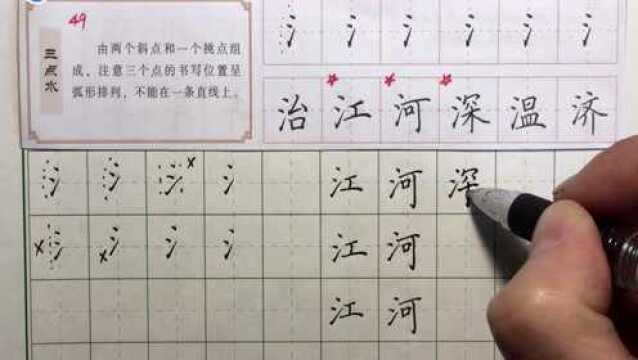 49
三点水
由两个斜点和一个挑点组
成，注意三个点的书写位置呈
弧形排列，不能在一条直线上。
氵氵氵氵氵氵
治江河深温济
氵氵氵氵江河深
氵氵氵氵江河
江河